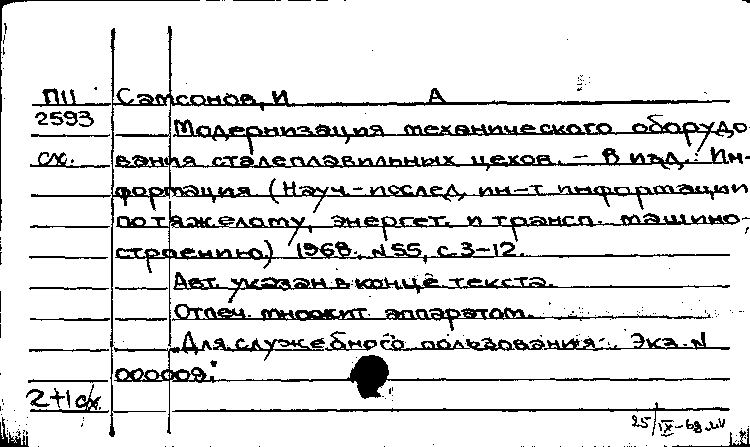 П11 Самсонов, И А
2593 Модернизация механического оборудо
сх. вания сталеплавильных цехов. – В изд.: Ин-
формация (Науч.-исслед. ин-т информации
по тяжелому, энергет. и трансп. машино-
строению) 1968, N 55, с. 3-12.
Авт. указан в конце текста.
Отпеч. множит. аппаратом.
"Для служебного пользования". Экз. N
000009.
2+1 сх.
25/IX-69